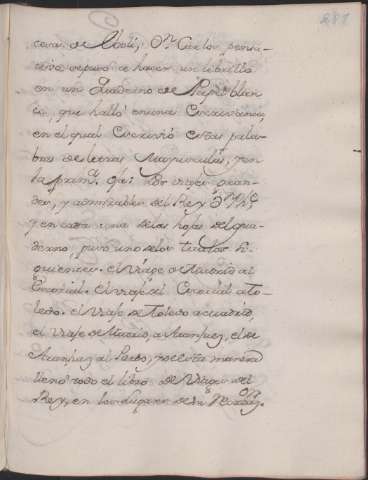 281
cavi de Eboli, Dn Carlos, pensa-
tivo se puso a hacer un librillo
en un Quaderno de Papel blan
co, que halló en una Escribania,
en el qual escrivió estas pala-
bras de letras Mayusculas, y en
la prim.
der, y admirables del Rey Dn Phe
y en cada una de las hojas del qua-
derno, puso uno de los titulos si-
guientes. el viage de Madrid al
Escorial. el viage del Escorial a To-
ledo. el viage de Toledo a Madrid,
el viage de Madrid, a Aranjuez, el de
Aranjuez al Pardo, y de esta manera
llenó todo el libro de Viages del
Rey, en los lugares de su